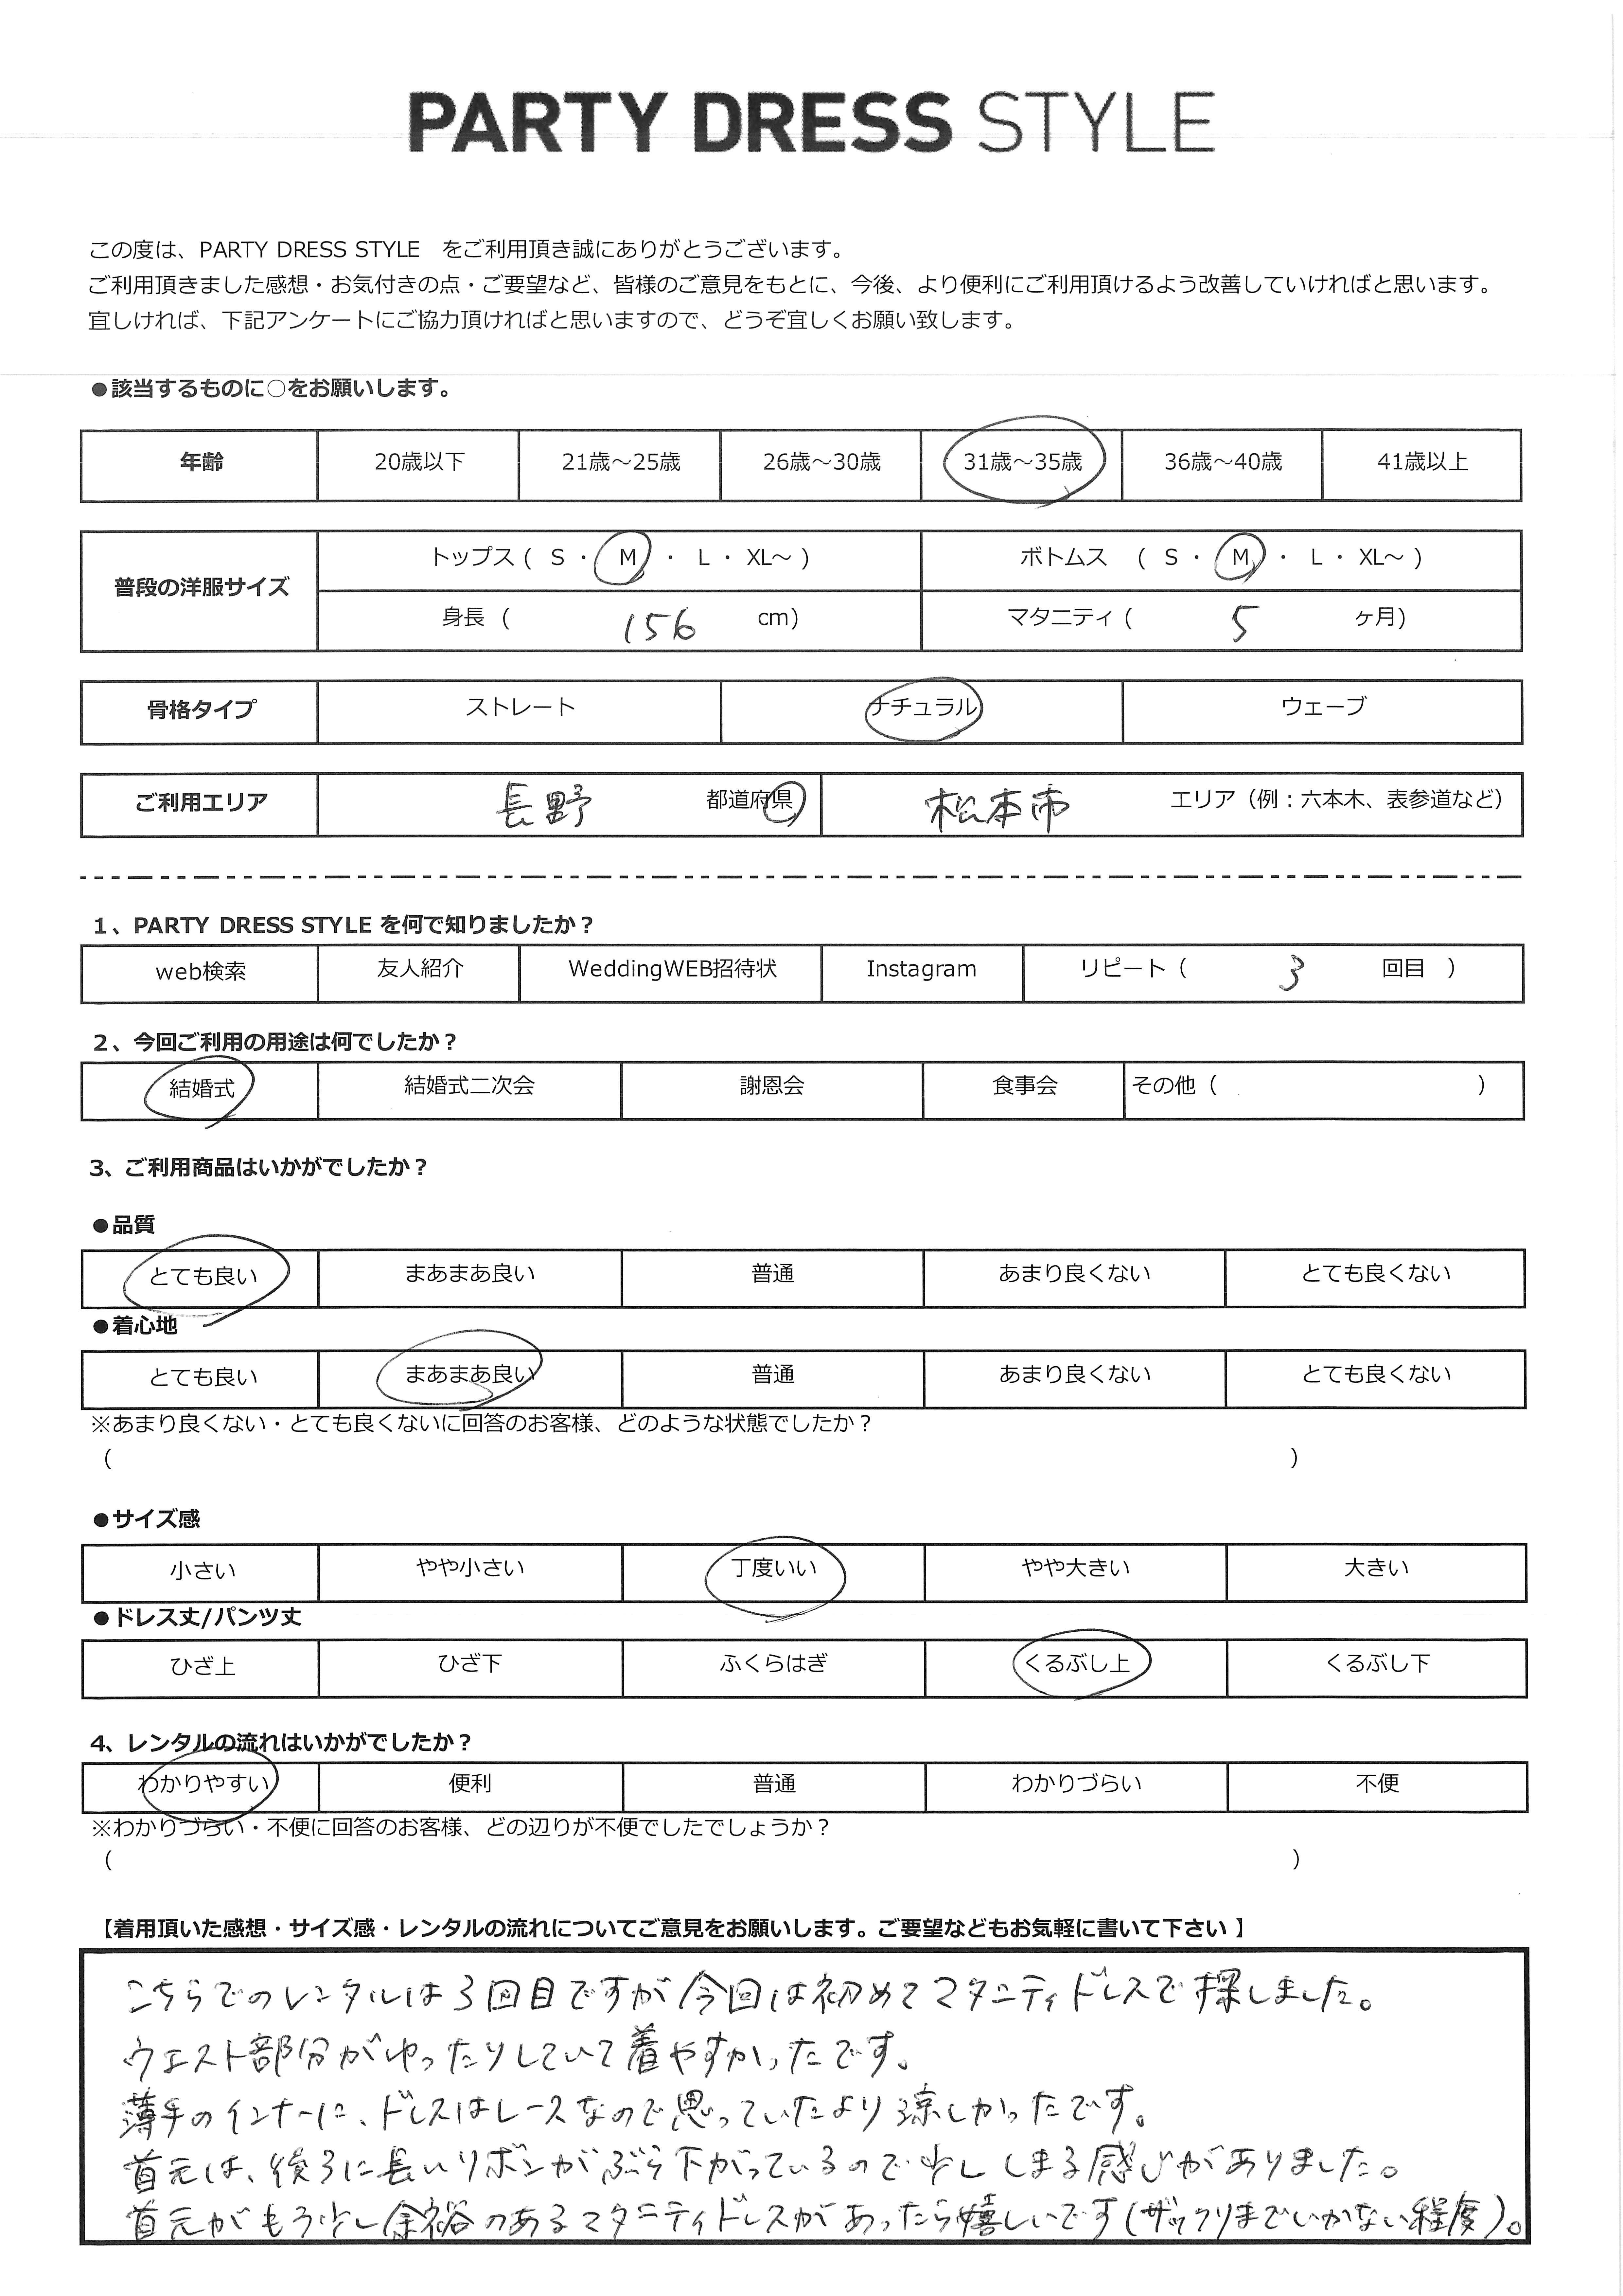 PARTY DRESS STYLE
この度は、PARTY DRESS STYLE　をご利用頂き誠にありがとうございます。
ご利用頂きました感想・お気付きの点・ご要望など、皆様のご意見をもとに、今後、より便利にご利用頂けるよう改善していければと思います。
宜しければ、下記アンケートにご協力頂ければと思いますので、どうぞ宜しくお願い致します。
●該当するものに○をお願いします。
年齢 20歳以下 21歳～25歳 26歳～30歳 31歳～35歳 36歳～40歳 41歳以上
普段の洋服サイズ トップス ( S ・ M ・ L ・ XL～ ) ボトムス ( S ・ M ・ L ・ XL～ )
身長 ( 156 cm) マタニティ ( 5 ヶ月)
骨格タイプ ストレート ナチュラル ウェーブ
ご利用エリア 長野 都道府県 松本市 エリア（例：六本木、表参道など）
1、PARTY DRESS STYLE を何で知りましたか？
web検索 友人紹介 WeddingWEB招待状 Instagram リピート（ 3 回目 ）
2、今回ご利用の用途は何でしたか？
結婚式 結婚式二次会 謝恩会 食事会 その他（ ）
3、ご利用商品はいかがでしたか？
●品質
とても良い まあまあ良い 普通 あまり良くない とても良くない
●着心地
とても良い まあまあ良い 普通 あまり良くない とても良くない
※あまり良くない・とても良くないに回答のお客様、どのような状態でしたか？
（ ）
●サイズ感
小さい やや小さい 丁度いい やや大きい 大きい
●ドレス丈/パンツ丈
ひざ上 ひざ下 ふくらはぎ くるぶし上 くるぶし下
4、レンタルの流れはいかがでしたか？
わかりやすい 便利 普通 わかりづらい 不便
※わかりづらい・不便に回答のお客様、どの辺りが不便でしたでしょうか？
（ ）
【着用頂いた感想・サイズ感・レンタルの流れについてご意見をお願いします。ご要望などもお気軽に書いて下さい 】
こちらでのレンタルは3回目ですが今回は初めてマタニティドレスで探しました。
ウエスト部分がゆったりしていて着やすかったです。
薄手のインナーに、ドレスはレースなので思っていたより涼しかったです。
首元は、後ろに長いリボンがぶら下がっているので少ししまる感じがありました。
首元がもう少し余裕のあるマタニティドレスがあったら嬉しいです(ザックリまでいかない程度)。